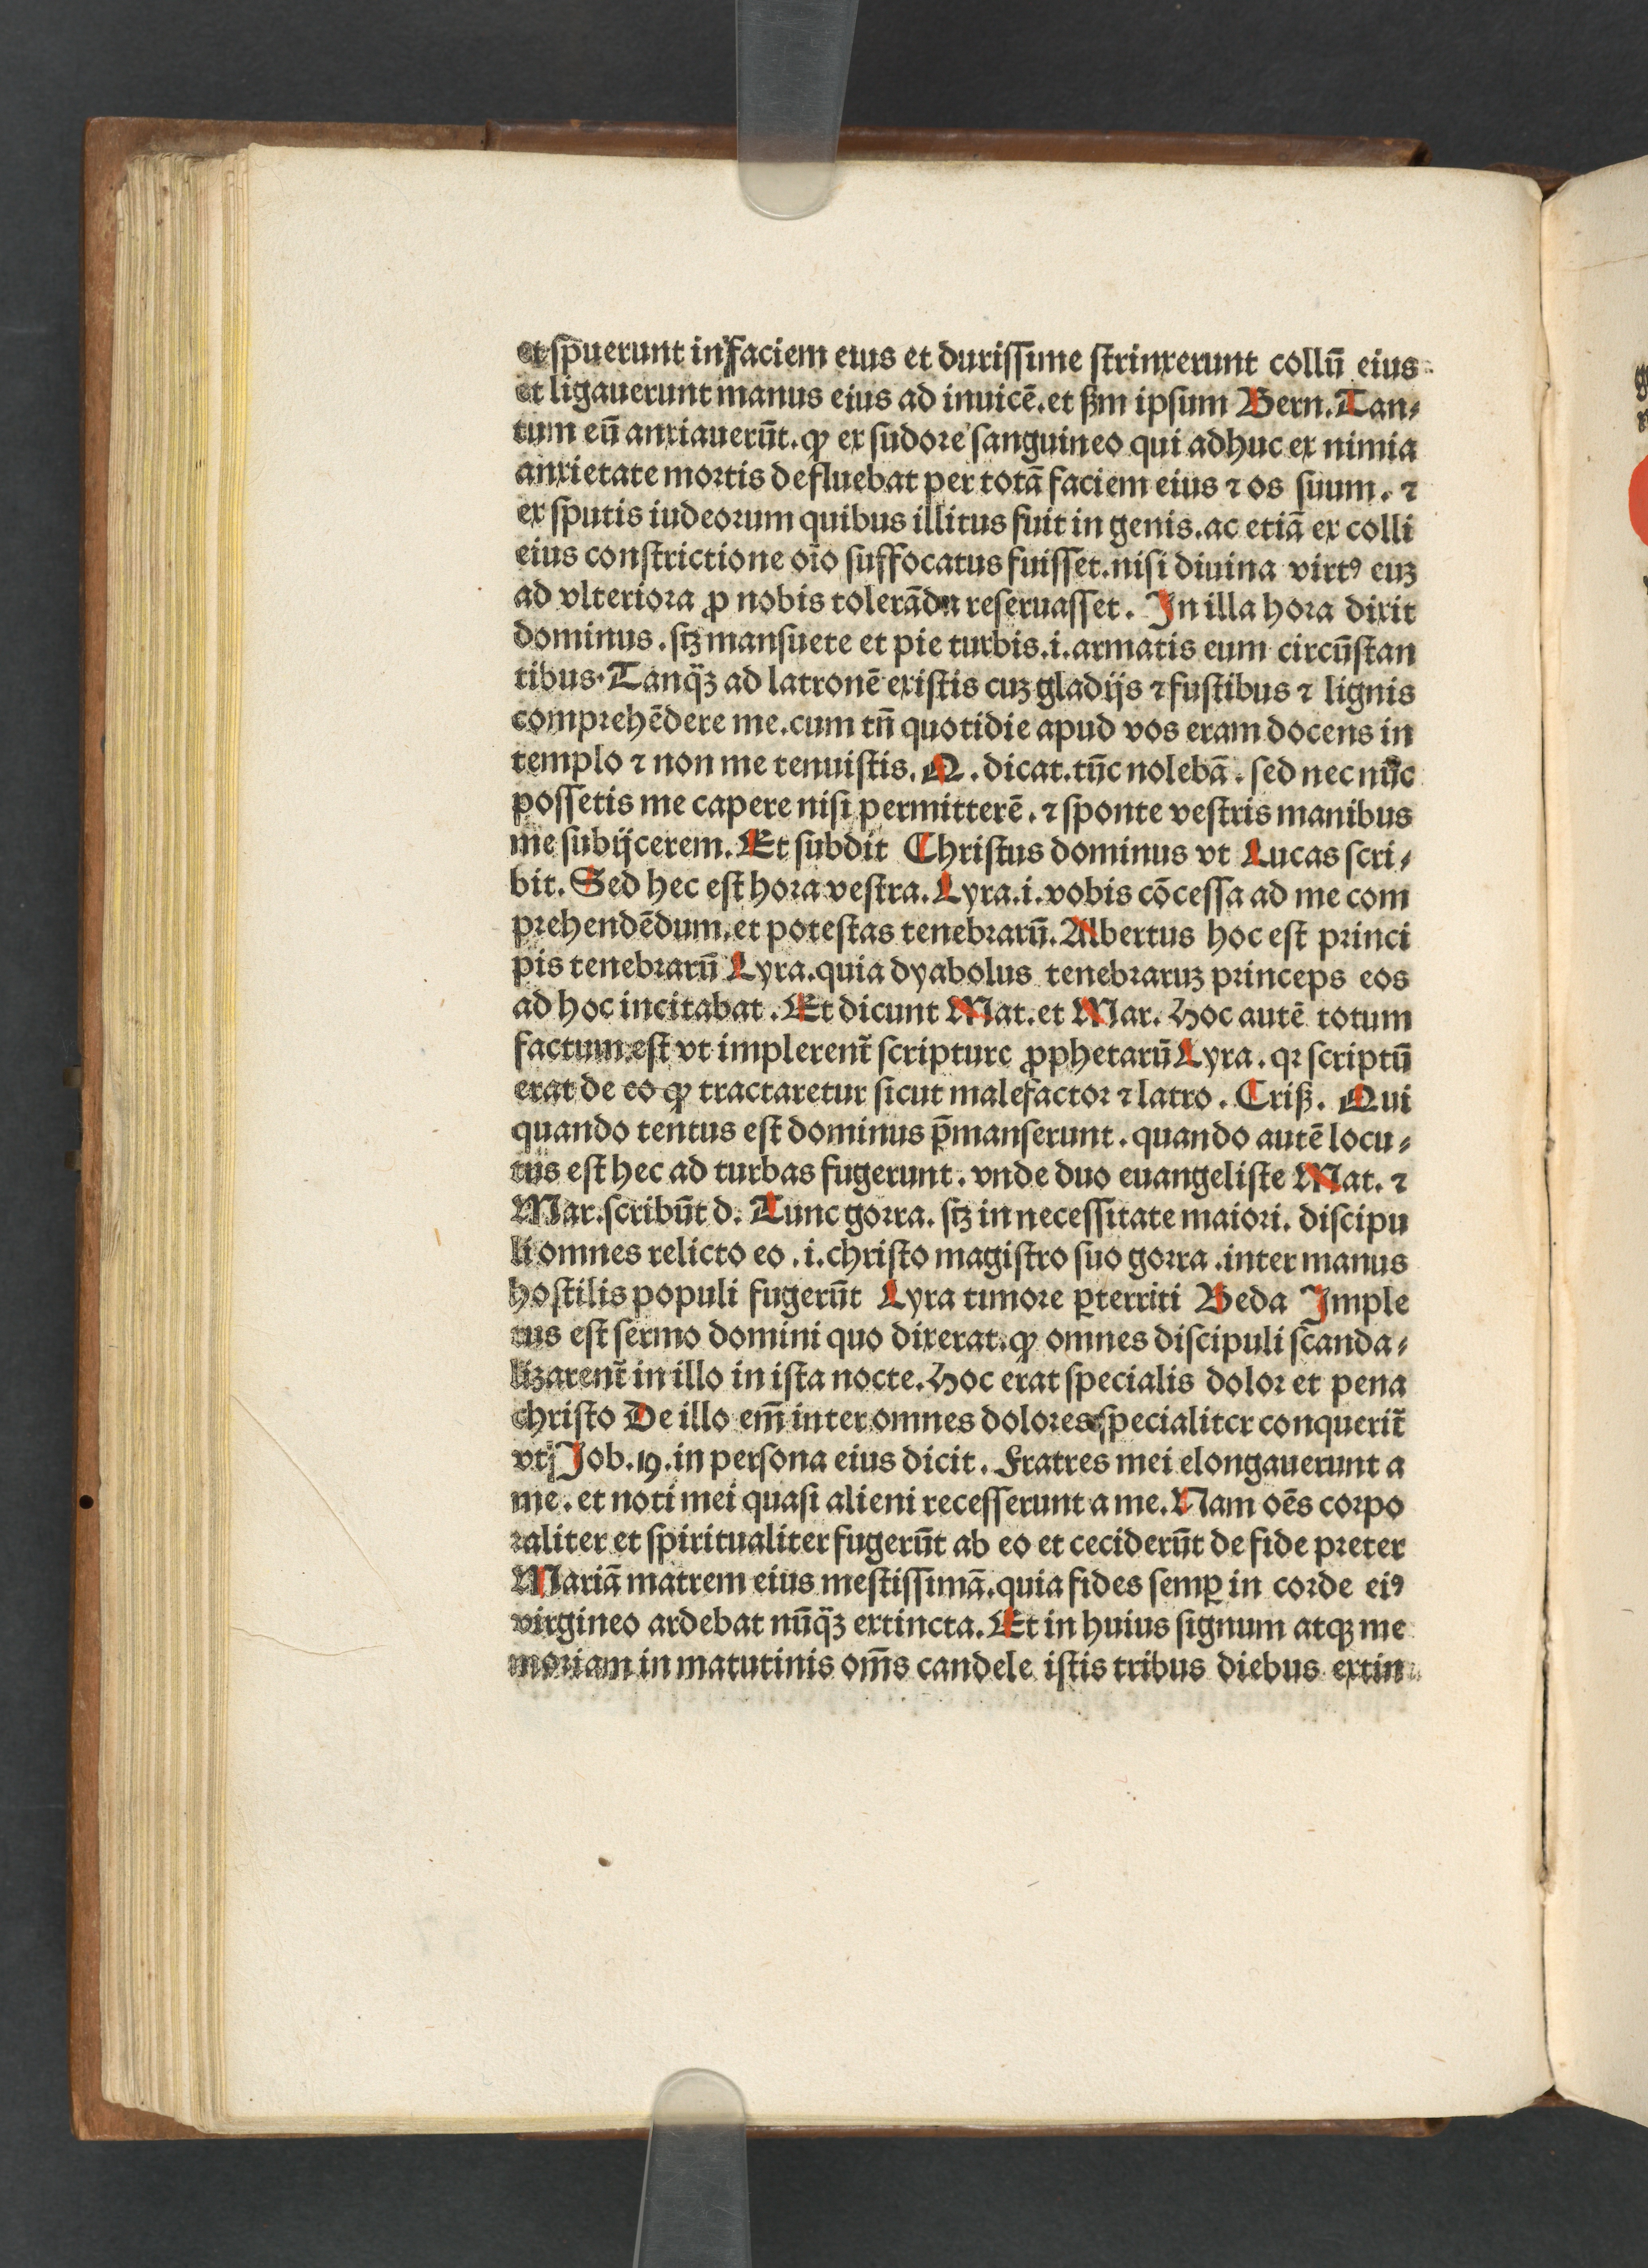 et spuerunt in faciem eius et durissime strinxerunt collū eius
et ligauerunt manus eius ad inuicē. et ẜm ipsum Bern. Tan⸗
tum eū anxiauerūt. ꝙ ex sudore sanguineo qui adhuc ex nimia
anxietate mortis defluebat per totā faciem eius ⁊ os suum. ⁊
ex sputis iudeorum quibus illitus fuit in genis. ac etiā ex colli
eius constrictione oīo suffocatus fuisset. nisi diuina virtꝰ euꝫ
ad vlteriora ꝓ nobis tolerādu reseruasset. In illa hora dixit
dominus. sꝫ mansuete et pie turbis .i. armatis eum circūstan
tibus. Tanq̈ꝫ ad latronē existis cuꝫ gladijs ⁊ fustibus ⁊ lignis
comprehēdere me. cum tn̄ quotidie apud vos eram docens in
templo ⁊ non me tenuistis. Q. dicat. tūc nolebā. sed nec nūc
possetis me capere nisi permitterē. ⁊ sponte vestris manibus
me subijcerem. Et subdit Christus dominus vt Lucas scri⸗
bit. Sed hec est hora vestra. Lyra .i. vobis cōcessa ad me com
prehendēdum. et potestas tenebrarū. Albertus hoc est princi
pis tenebrarū Lyra. quia dyabolus tenebraruꝫ princeps eos
ad hoc incitabat. Et dicunt Mat. et Mar. Hoc autē totum
factum est vt implerent̄ scripture ꝓphetarū Lyra. qꝛ scriptū
erat de eo ꝙ tractaretur sicut malefactor ⁊ latro. Criß. Qui
quando tentus est dominus p̄manserunt. quando autē locu⸗
tus est hec ad turbas fugerunt. vnde duo euangeliste Mat. ⁊
Mar. scribūt d. Tunc gorra. sꝫ in necessitate maiori. discipu
li omnes relicto eo .i. christo magistro suo gorra. inter manus
hostilis populi fugerūt Lyra timore ꝑterriti Beda Imple
tus est sermo domini quo dixerat. ꝙ omnes discipuli scanda⸗
lizarent̄ in illo in ista nocte. Hoc erat specialis dolor et pena
christo De illo em̄ inter omnes dolores specialiter conquerit̄
vt Job. 19. in persona eius dicit. Fratres mei elongauerunt a
me. et noti mei quasi alieni recesserunt a me. Nam oēs corpo
raliter et spiritualiter fugerūt ab eo et ceciderūt de fide preter
Mariā matrem eius mestissimā. quia fides semꝑ in corde eiꝰ
virgineo ardebat nūq̈ꝫ extincta. Et in huius signum atqꝫ me
moriam in matutinis om̄s candele istis tribus diebus extin⸗